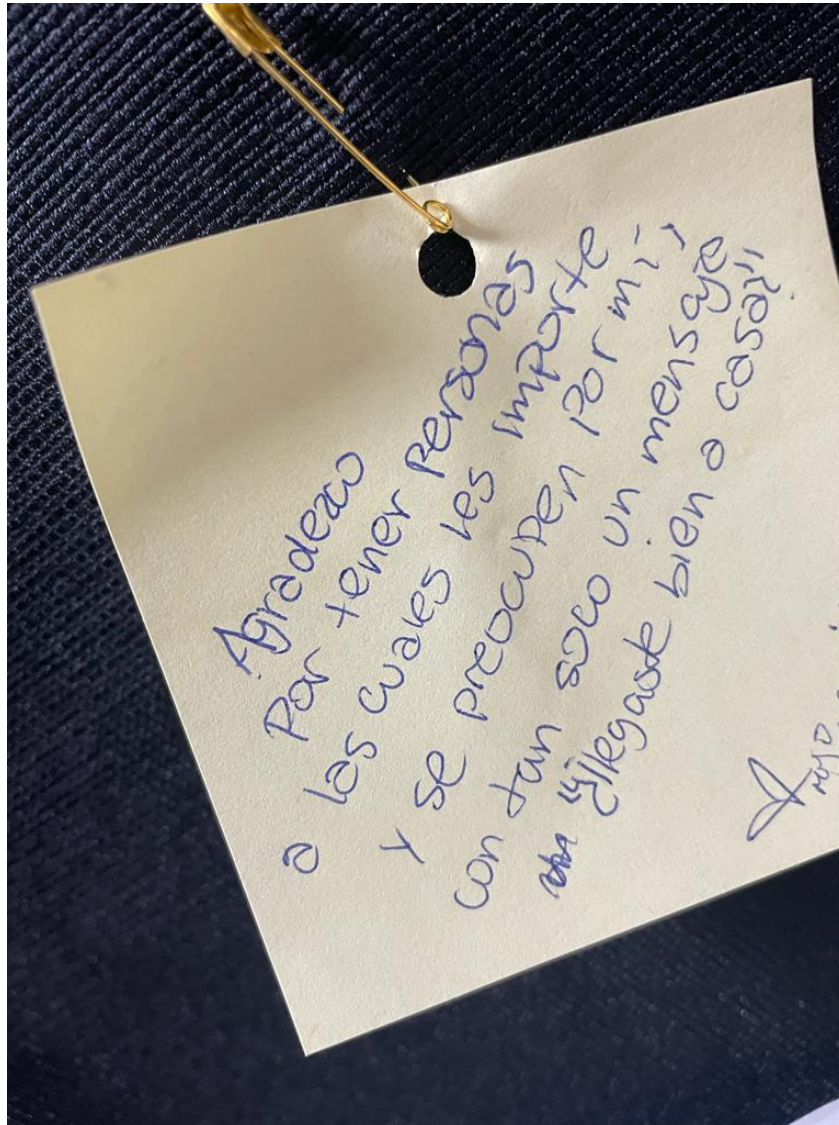 Agradezco
Por tener personas
a las cuales les importe
y se preocupen por mi,
con tan solo un mensaje
"¿llegaste bien a casa?"